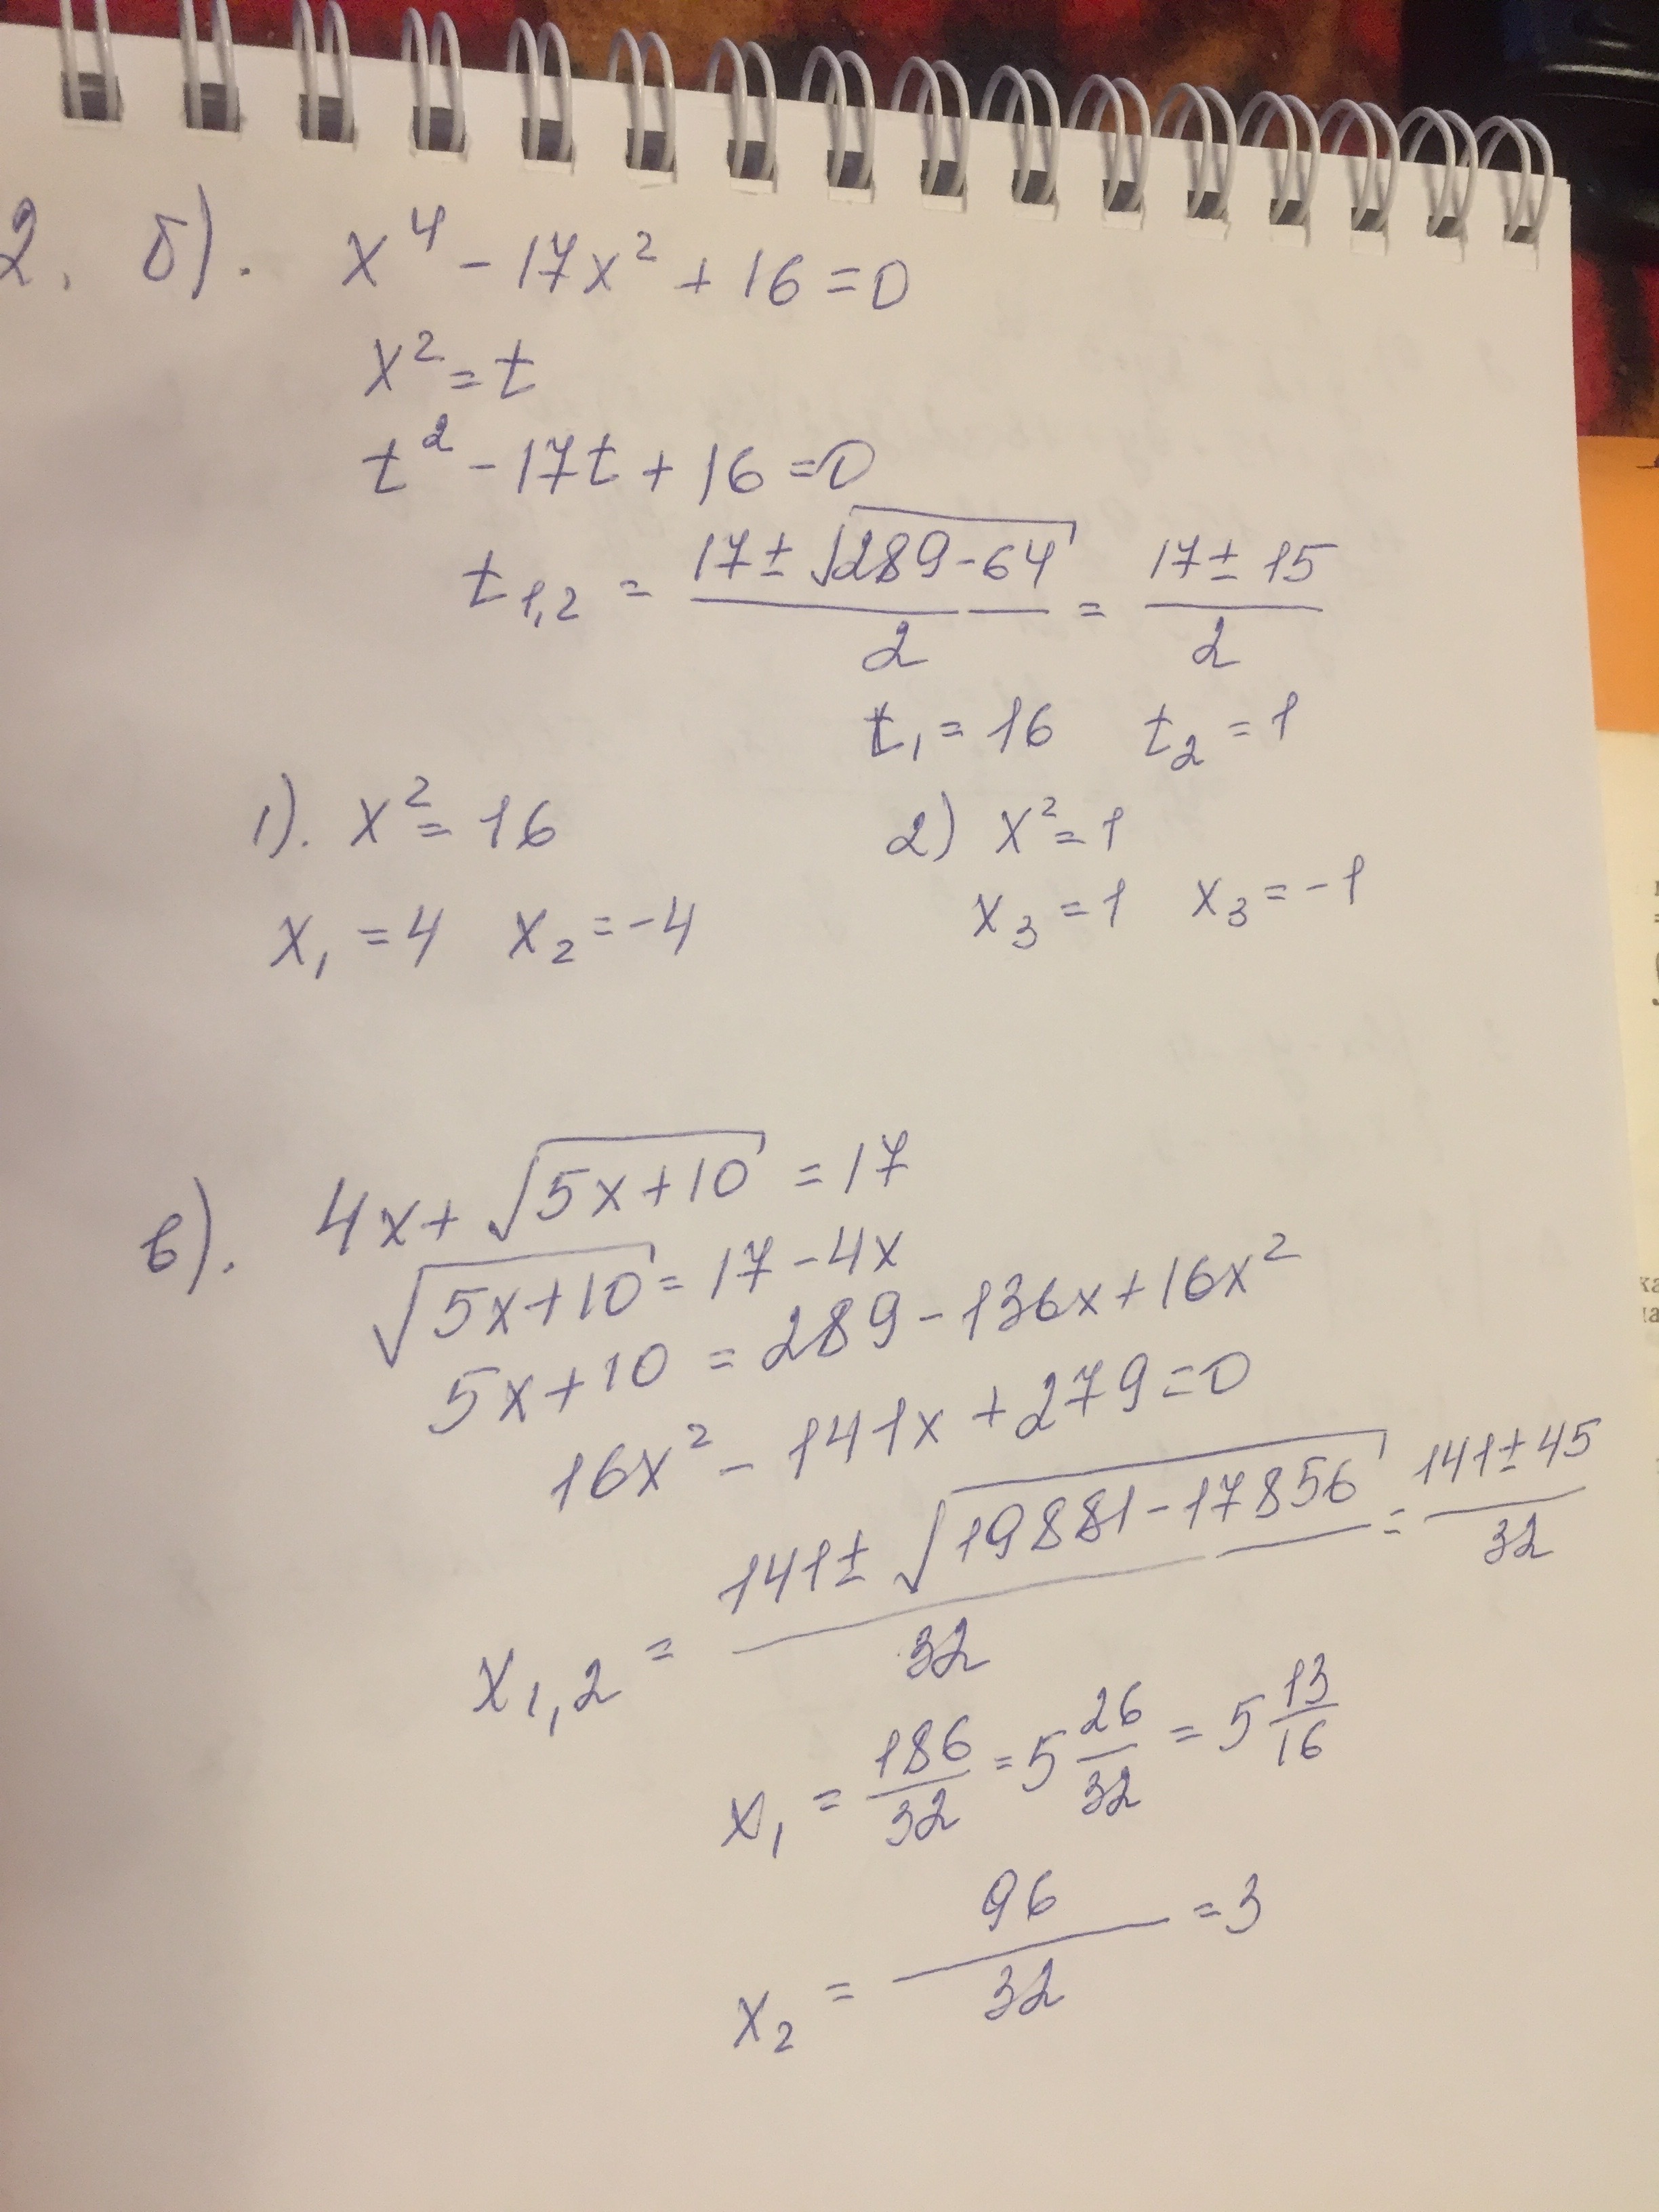 2. б). x⁴ - 17x² + 16 = 0
x² = t
t² - 17t + 16 = 0
t₁,₂ = (17 ± √(289 - 64))/2 = (17 ± 15)/2
t₁ = 16 t₂ = 1
1). x² = 16 2) x² = 1
x₁ = 4 x₂ = -4 x₃ = 1 x₃ = -1
в). 4x + √(5x + 10) = 17
√(5x + 10) = 17 - 4x
5x + 10 = 289 - 136x + 16x²
16x² - 141x + 279 = 0
x₁,₂ = (141 ± √(19881 - 17856))/32 = (141 ± 45)/32
x₁ = 186/32 = 5 26/32 = 5 13/16
x₂ = 96/32 = 3